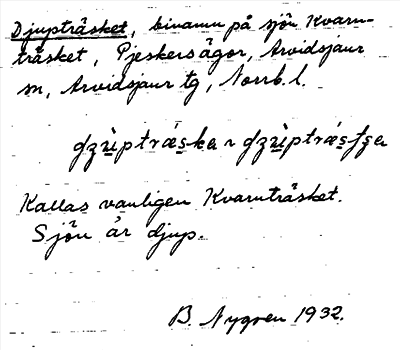 Djupträsket, binamn på sjön Kvarn-
träsket, Pjeskersågor, Arvidsjaur
sn, Arvidsjaur tg, Norrb. l.
Kallas vanligen Kvarnträsket.
Sjön är djup.
B. Nygren 1932.